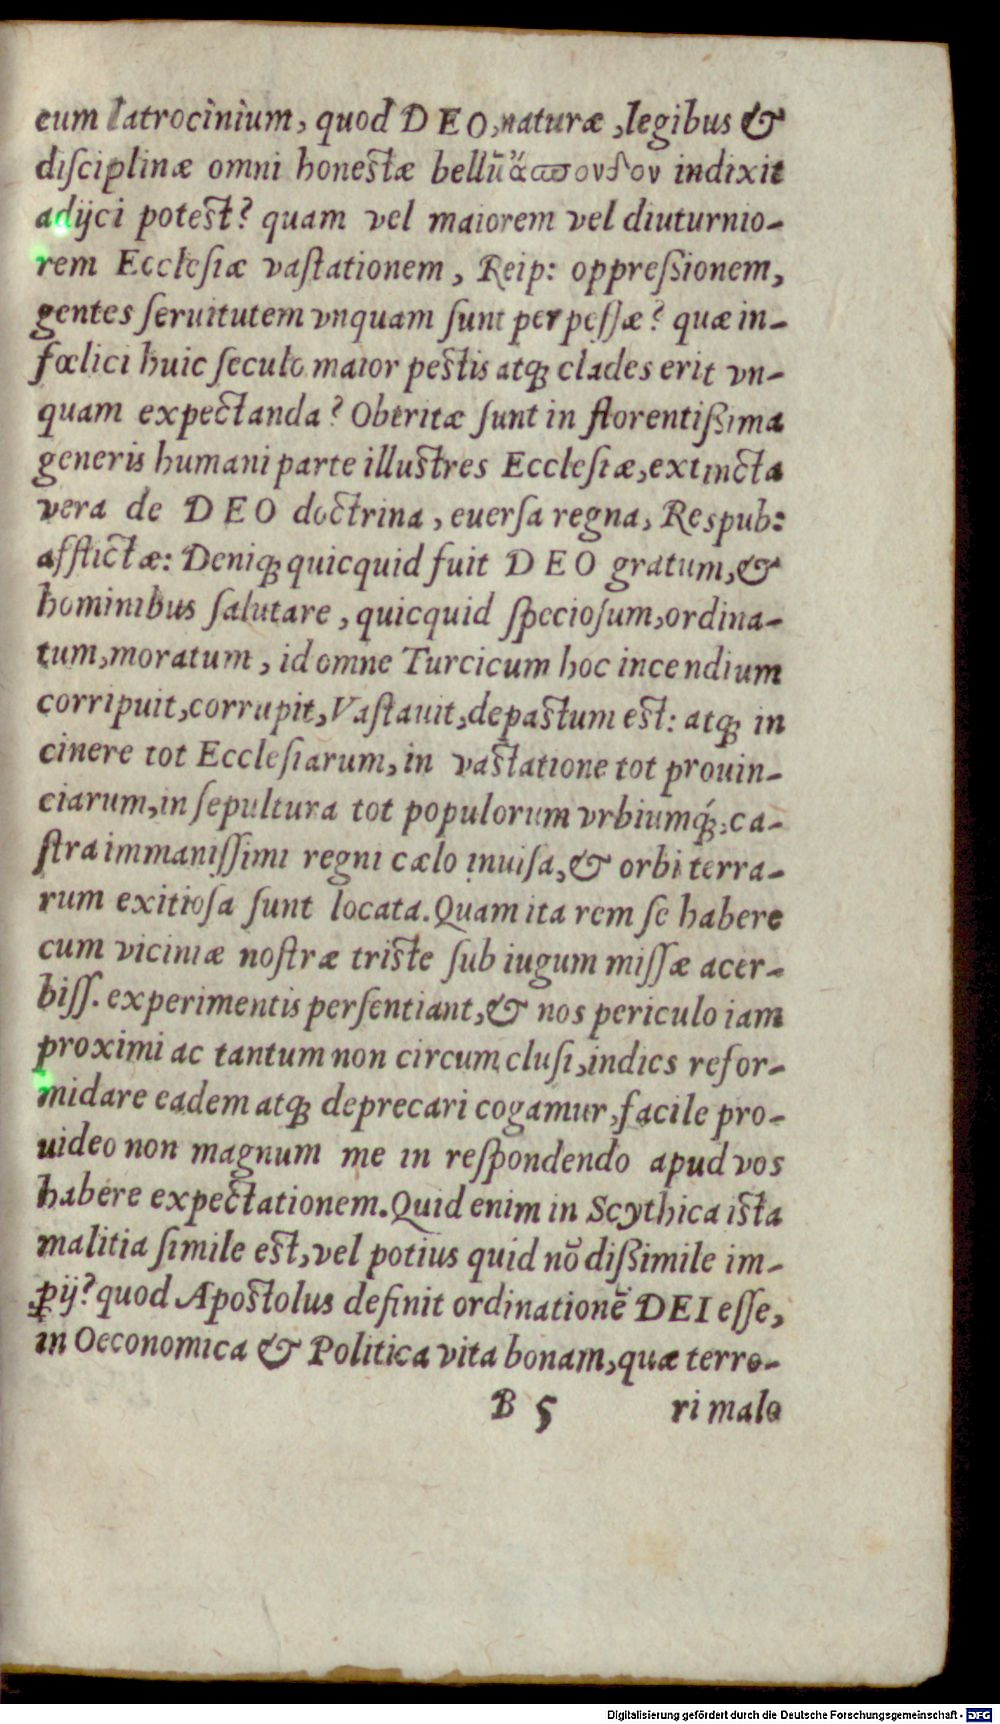 cum latrocinium, quod DEO, naturæ, legibus &
diſciplinæ omni honeſtæ bellū ἄσπονδον indixit
adijci poteſt? quam vel maiorem vel diuturnio-
rem Eccleſiæ vaſtationem, Reip: oppreſsionem,
gentes ſeruitutem vnquam ſunt perpeſſæ? quæ in-
fœlici huic ſeculo maior peſtis atq; clades erit vn-
quam expectanda? Obtritæ ſunt in florentiſsima
generis humani parte illuſtres Eccleſiæ, extincta
vera de DEO doctrina, euerſa regna, Respub:
afflictæ: Deniq; quicquid fuit DEO gratum, &
hominibus ſalutare, quicquid ſpecioſum, ordina-
tum, moratum, id omne Turcicum hoc incendium
corripuit, corrupit, Vaſtauit, depaſtum eſt: atq; in
cinere tot Eccleſiarum, in vaſtatione tot prouin-
ciarum, in ſepultura tot populorum vrbiumq́;, ca-
ſtra immaniſſimi regni cælo inuiſa, & orbi terra-
rum exitioſa ſunt locata. Quam ita rem ſe habere
cum viciniæ noſtræ triſte ſub iugum miſſæ acer-
biſſ. experimentis perſentiant, & nos periculo iam
proximi ac tantum non circumcluſi, indies refor-
midare eadem atq; deprecari cogamur, facile pro-
uideo non magnum me in reſpondendo apud vos
habere expectationem. Quid enim in Scythica iſta
malitia ſimile eſt, vel potius quid nō diſsimile im-
pij? quod Apoſtolus definit ordinationē DEI eſſe,
in Oeconomica & Politica vita bonam, quæ terro-
B 5 ri malo
Digitalisierung gefördert durch die Deutsche Forschungsgemeinschaft - DFG